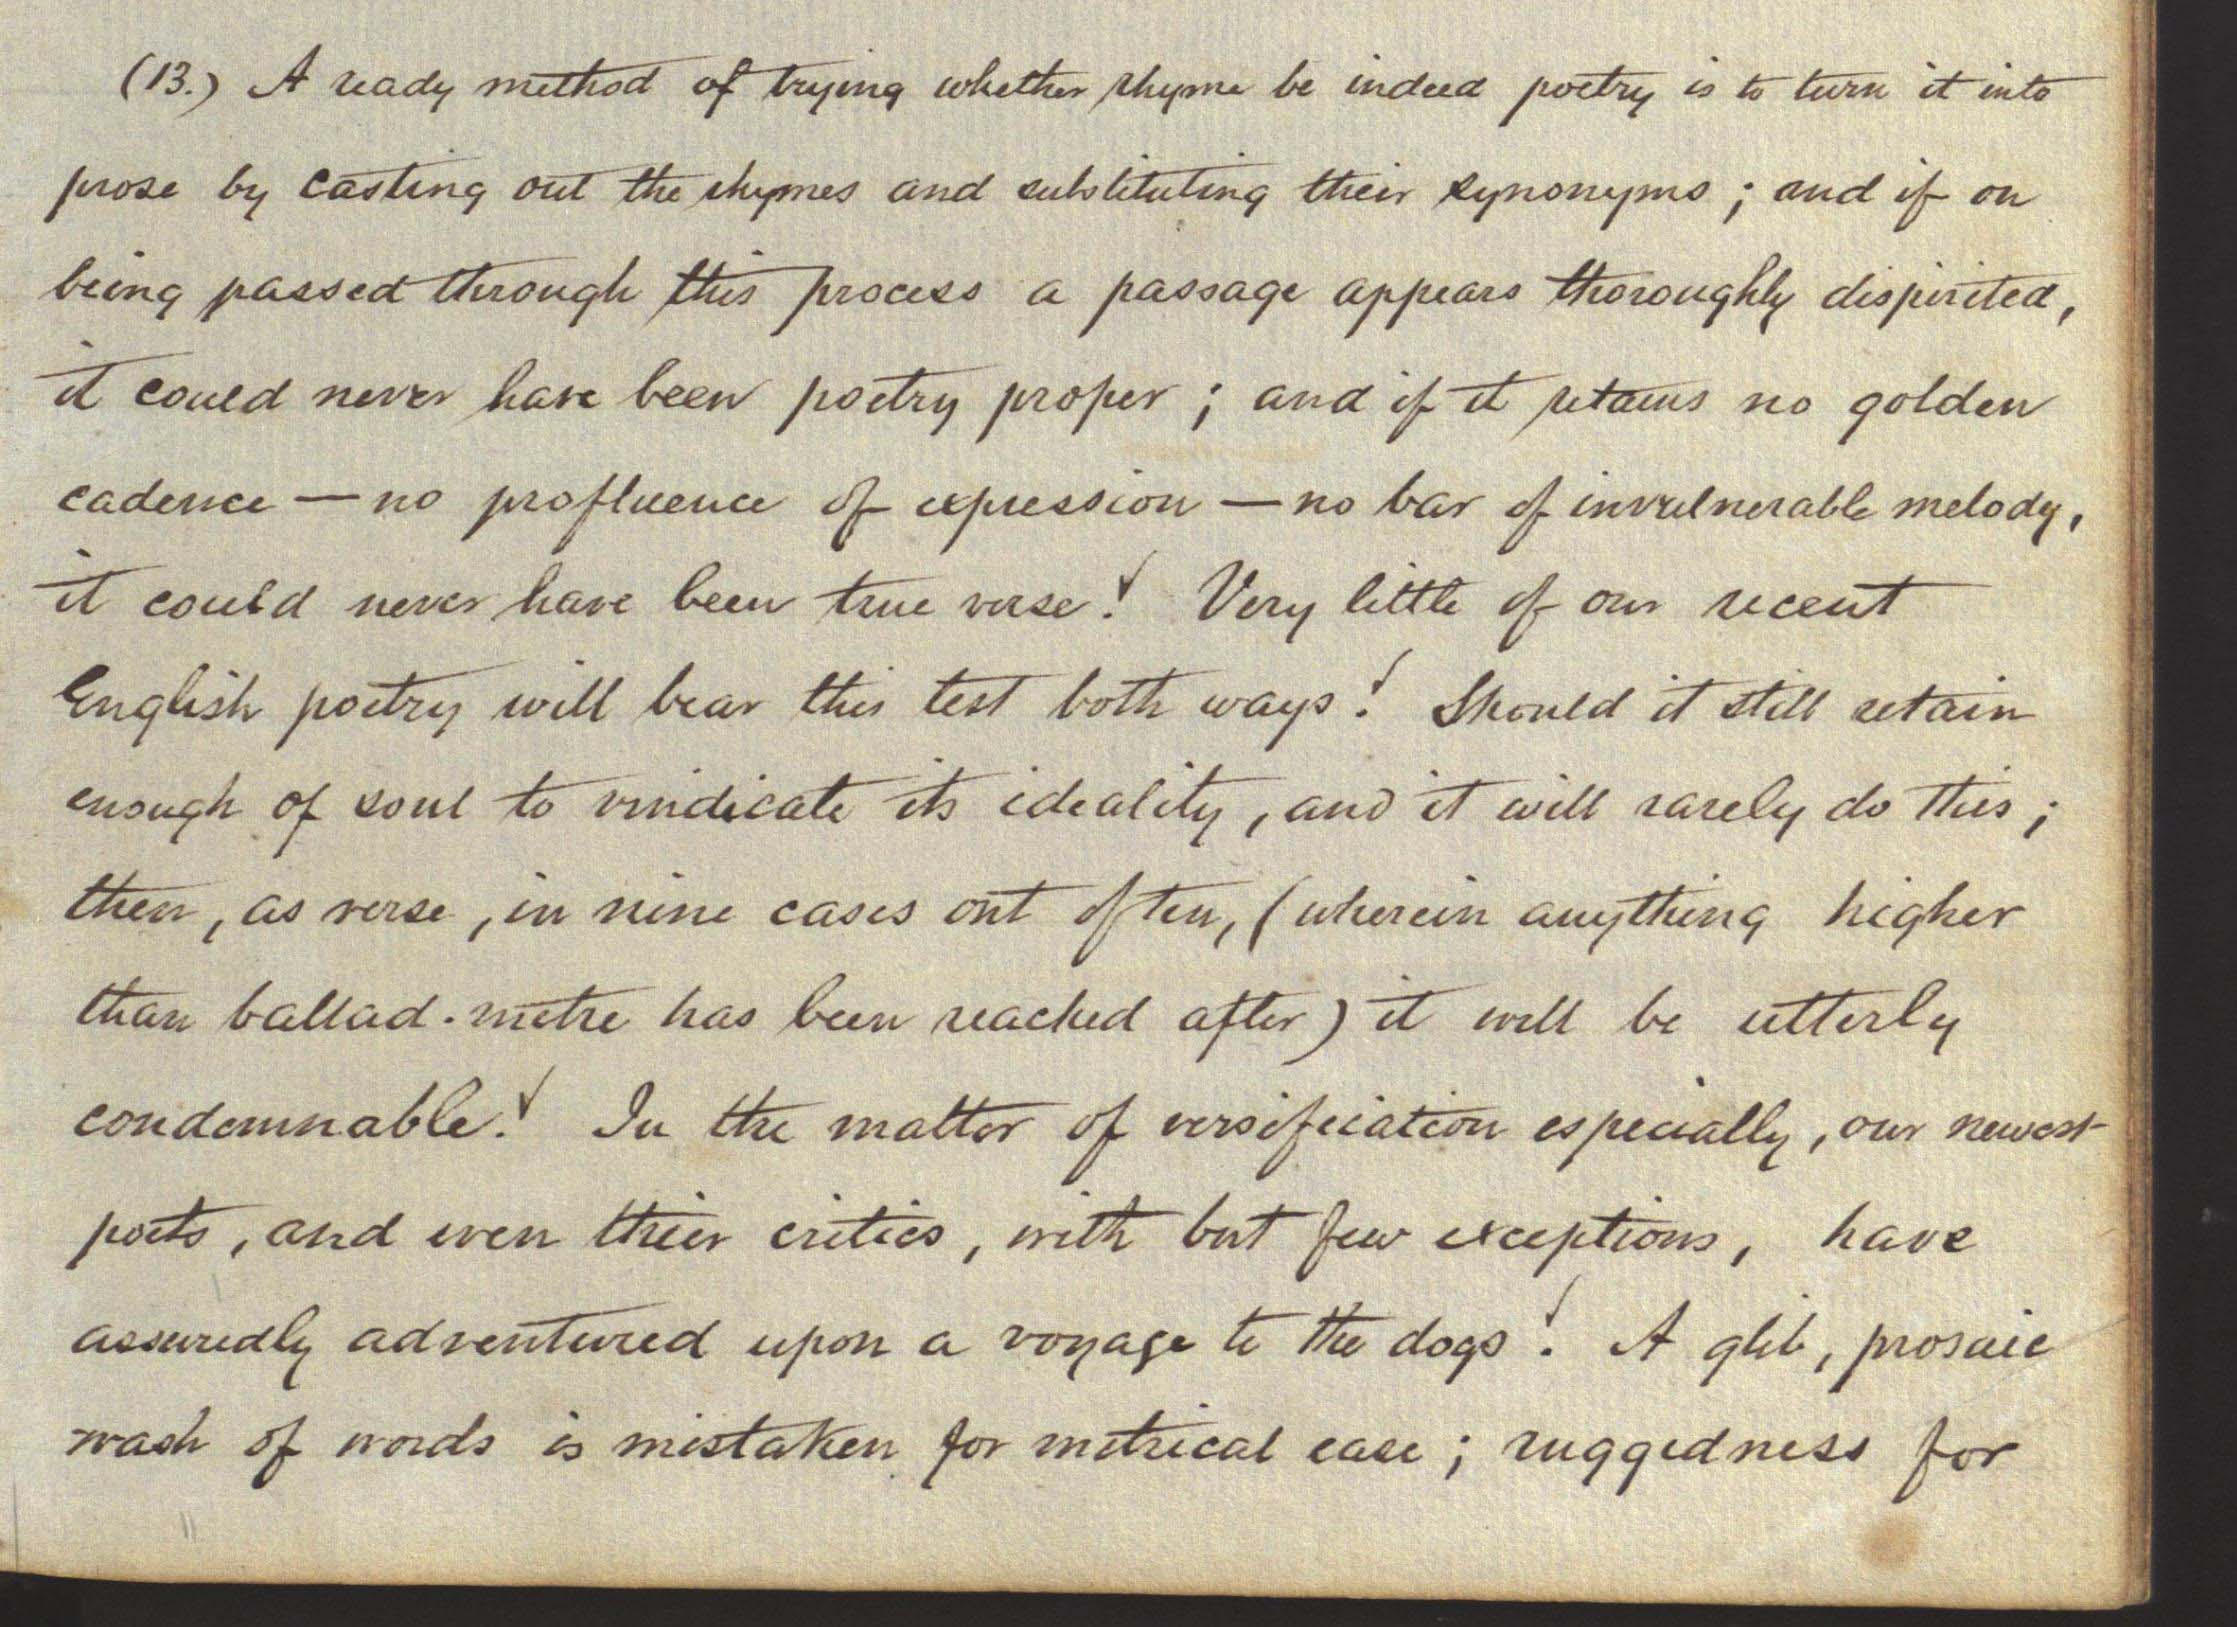 (13.) A ready method of trying whether rhyme be indeed poetry is to turn it into
prose by casting out the rhymes and substituting their synonyms ; and if on
being passed through this process a passage appears thoroughly dispirited,
it could never have been poetry proper ; and if it retains no golden
cadence — no profluence of expression — no bar of invulnerable melody,
it could never have been true verse ! Very little of our recent
English poetry will bear this test both ways ! Should it still retain
enough of soul to vindicate its ideality, and it will rarely do this ;
then, as verse, in nine cases out of ten, (wherein anything higher
than ballad-metre has been reached after) it will be utterly
condemnable ! In the matter of versification especially, our newest
poets, and even their critics, with but few exceptions, have
assuredly adventured upon a voyage to the dogs ! A glib, prosaic
wash of words is mistaken for metrical ease ; ruggedness for